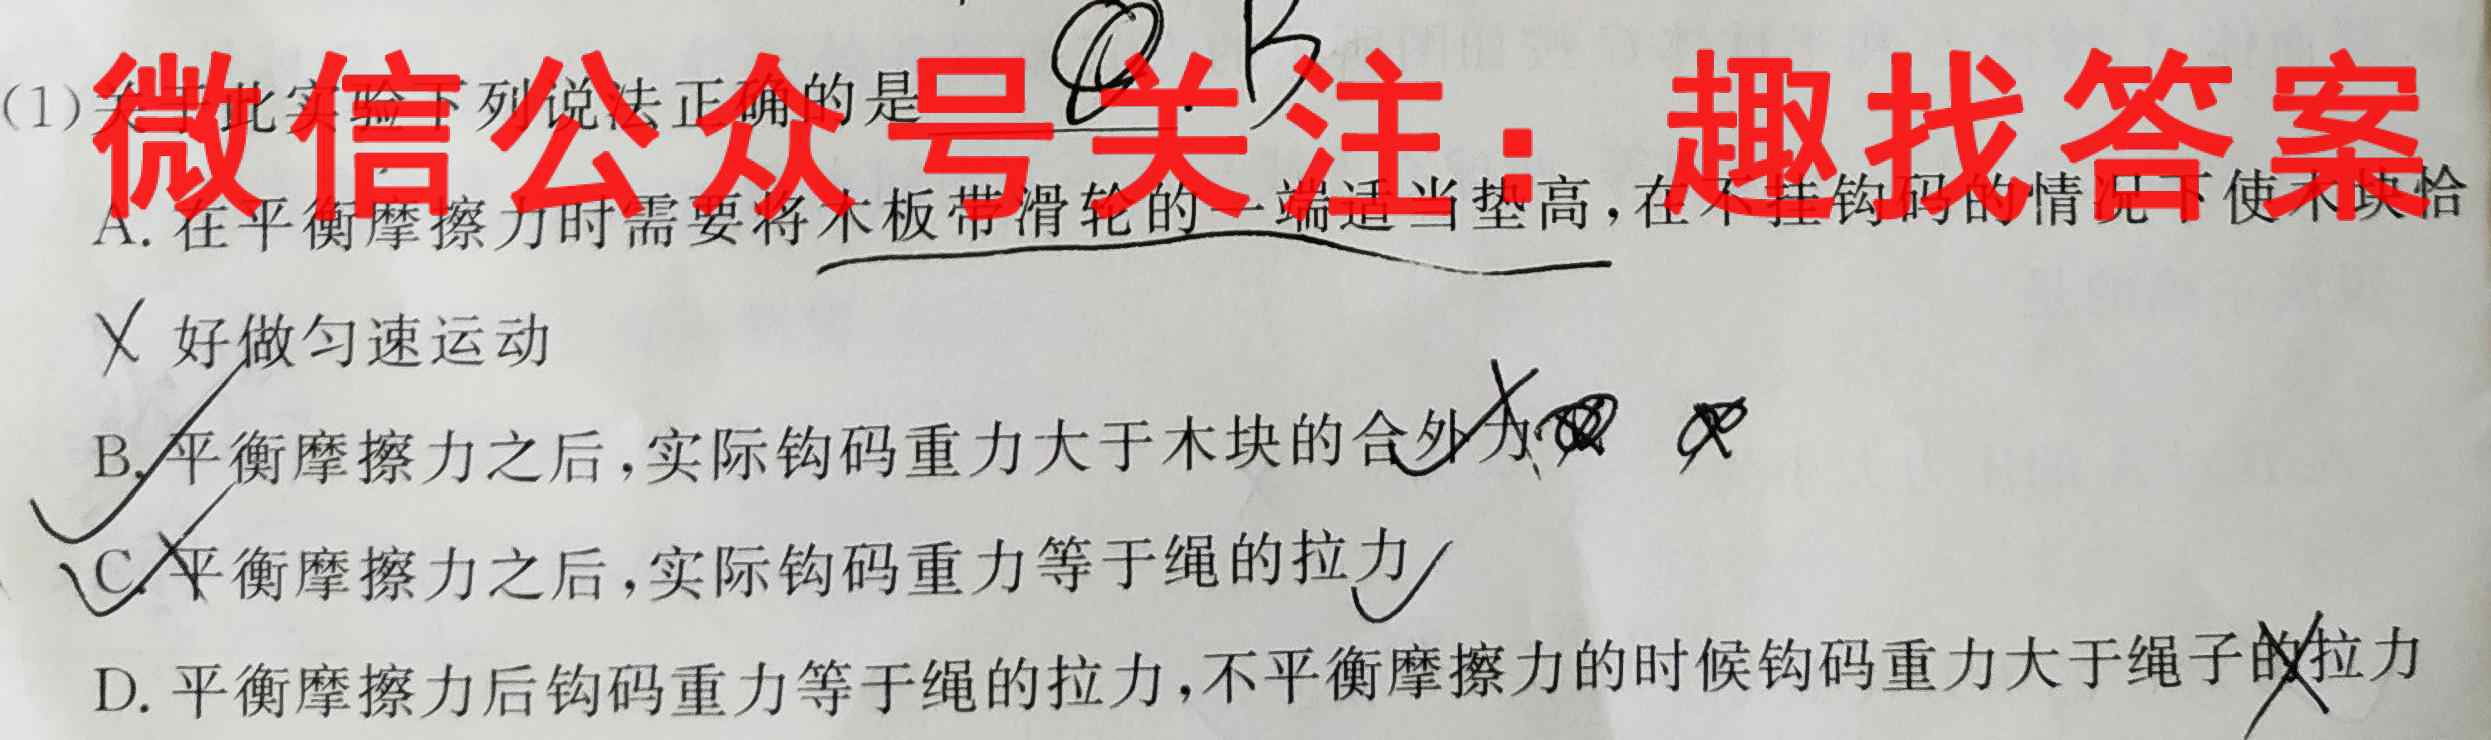 (1)关于此实验下列说法正确的是 B
微信公众号关注：趣找答案
A. 在平衡摩擦力时需要将木板带滑轮的一端适当垫高,在不挂钩码的情况下使木块恰
好做匀速运动
B. 平衡摩擦力之后,实际钩码重力大于木块的合外力
C. 平衡摩擦力之后,实际钩码重力等于绳的拉力
D. 平衡摩擦力后钩码重力等于绳的拉力,不平衡摩擦力的时候钩码重力大于绳子的拉力